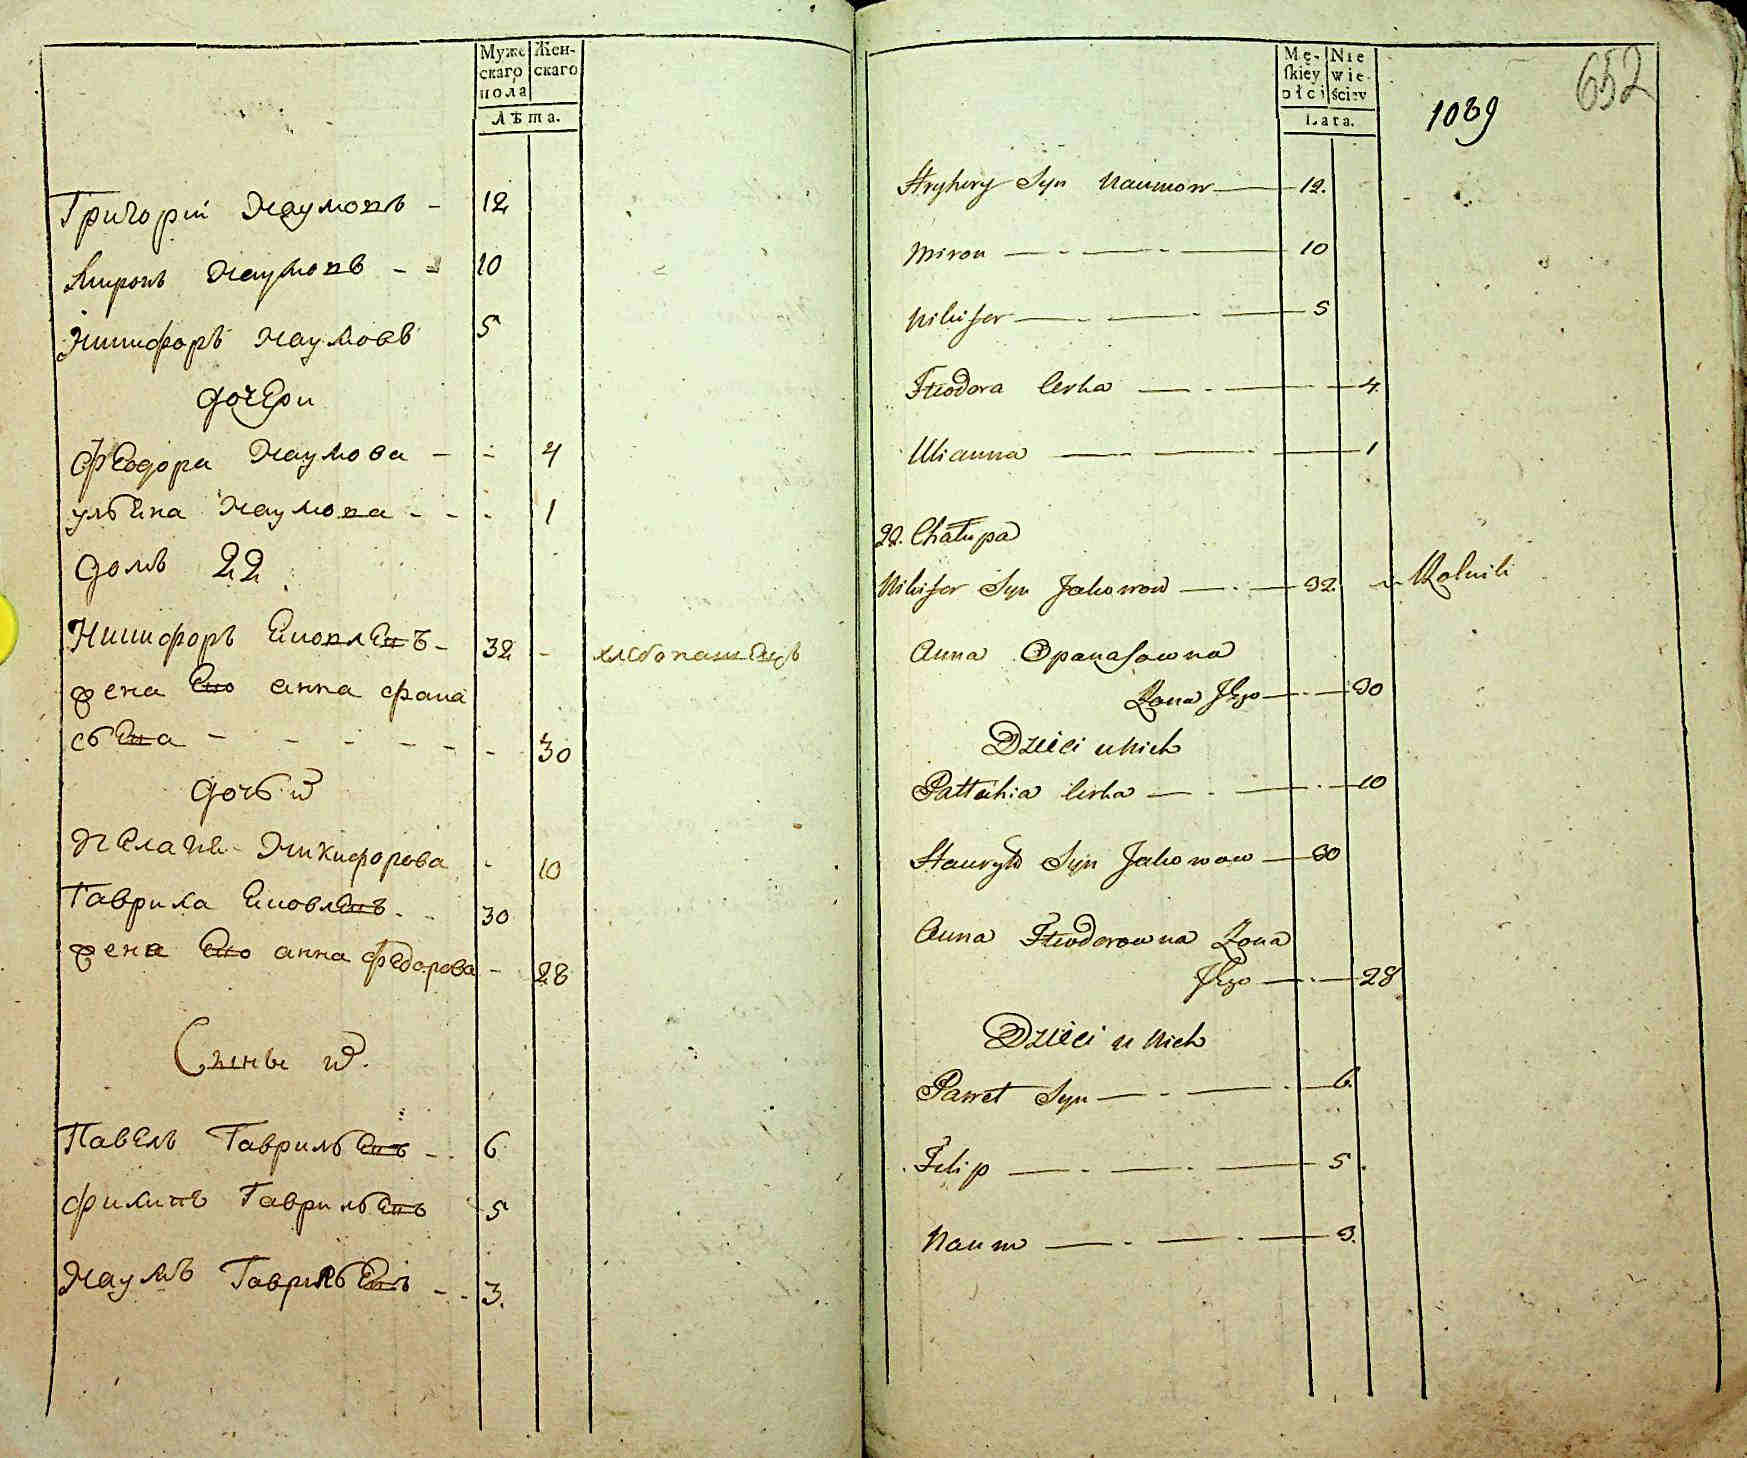 Муже Жен-
скаго скаго
пола
Лѣта.
Григорий Наумовъ - 12
Миронъ Наумовъ - - 10
Никифоръ Наумовъ 5
дочери
Феодора Наумова - - 4
ульяна Наумова - - - 1
домъ 22
Никифоръ Яковлевъ - 32 - хлебопашецъ
жена Его анна Фана
сьева - - - - - - 30
дочь их
Пелагия Никифорова - 10
Гаврила Яковлевъ - - 30
жена Его анна Федорова - 28
Сыны их.
Павелъ Гаврильевъ - - 6
Филипъ Гаврильевъ 5
Наумъ Гаврильевъ - - 3.
652
1089
Mę- Nie
skiey wie
płci ściey
Lata.
Hryhory Syn Naumow — 12.
Miron — - — - — 10
Nikifor — - — - — 5
Fteodora Corka — - — 4
Ulianna — - — - — 1
22. Chałupa
Nikifor Syn Jakowow — - — 32. Rolnik
Anna Opanasowna
Zona Jego — - — 30
Dzieci u Nich
Pałłahia Corka — - — - — 10
Hawryło Syn Jakowow — 30
Anna Fteodorowna Zona
Jego — - — 28
Dzieci u Nich
Paweł Syn — - — - — 6.
Filip — - — - — 5
Naum — - — - — 3.